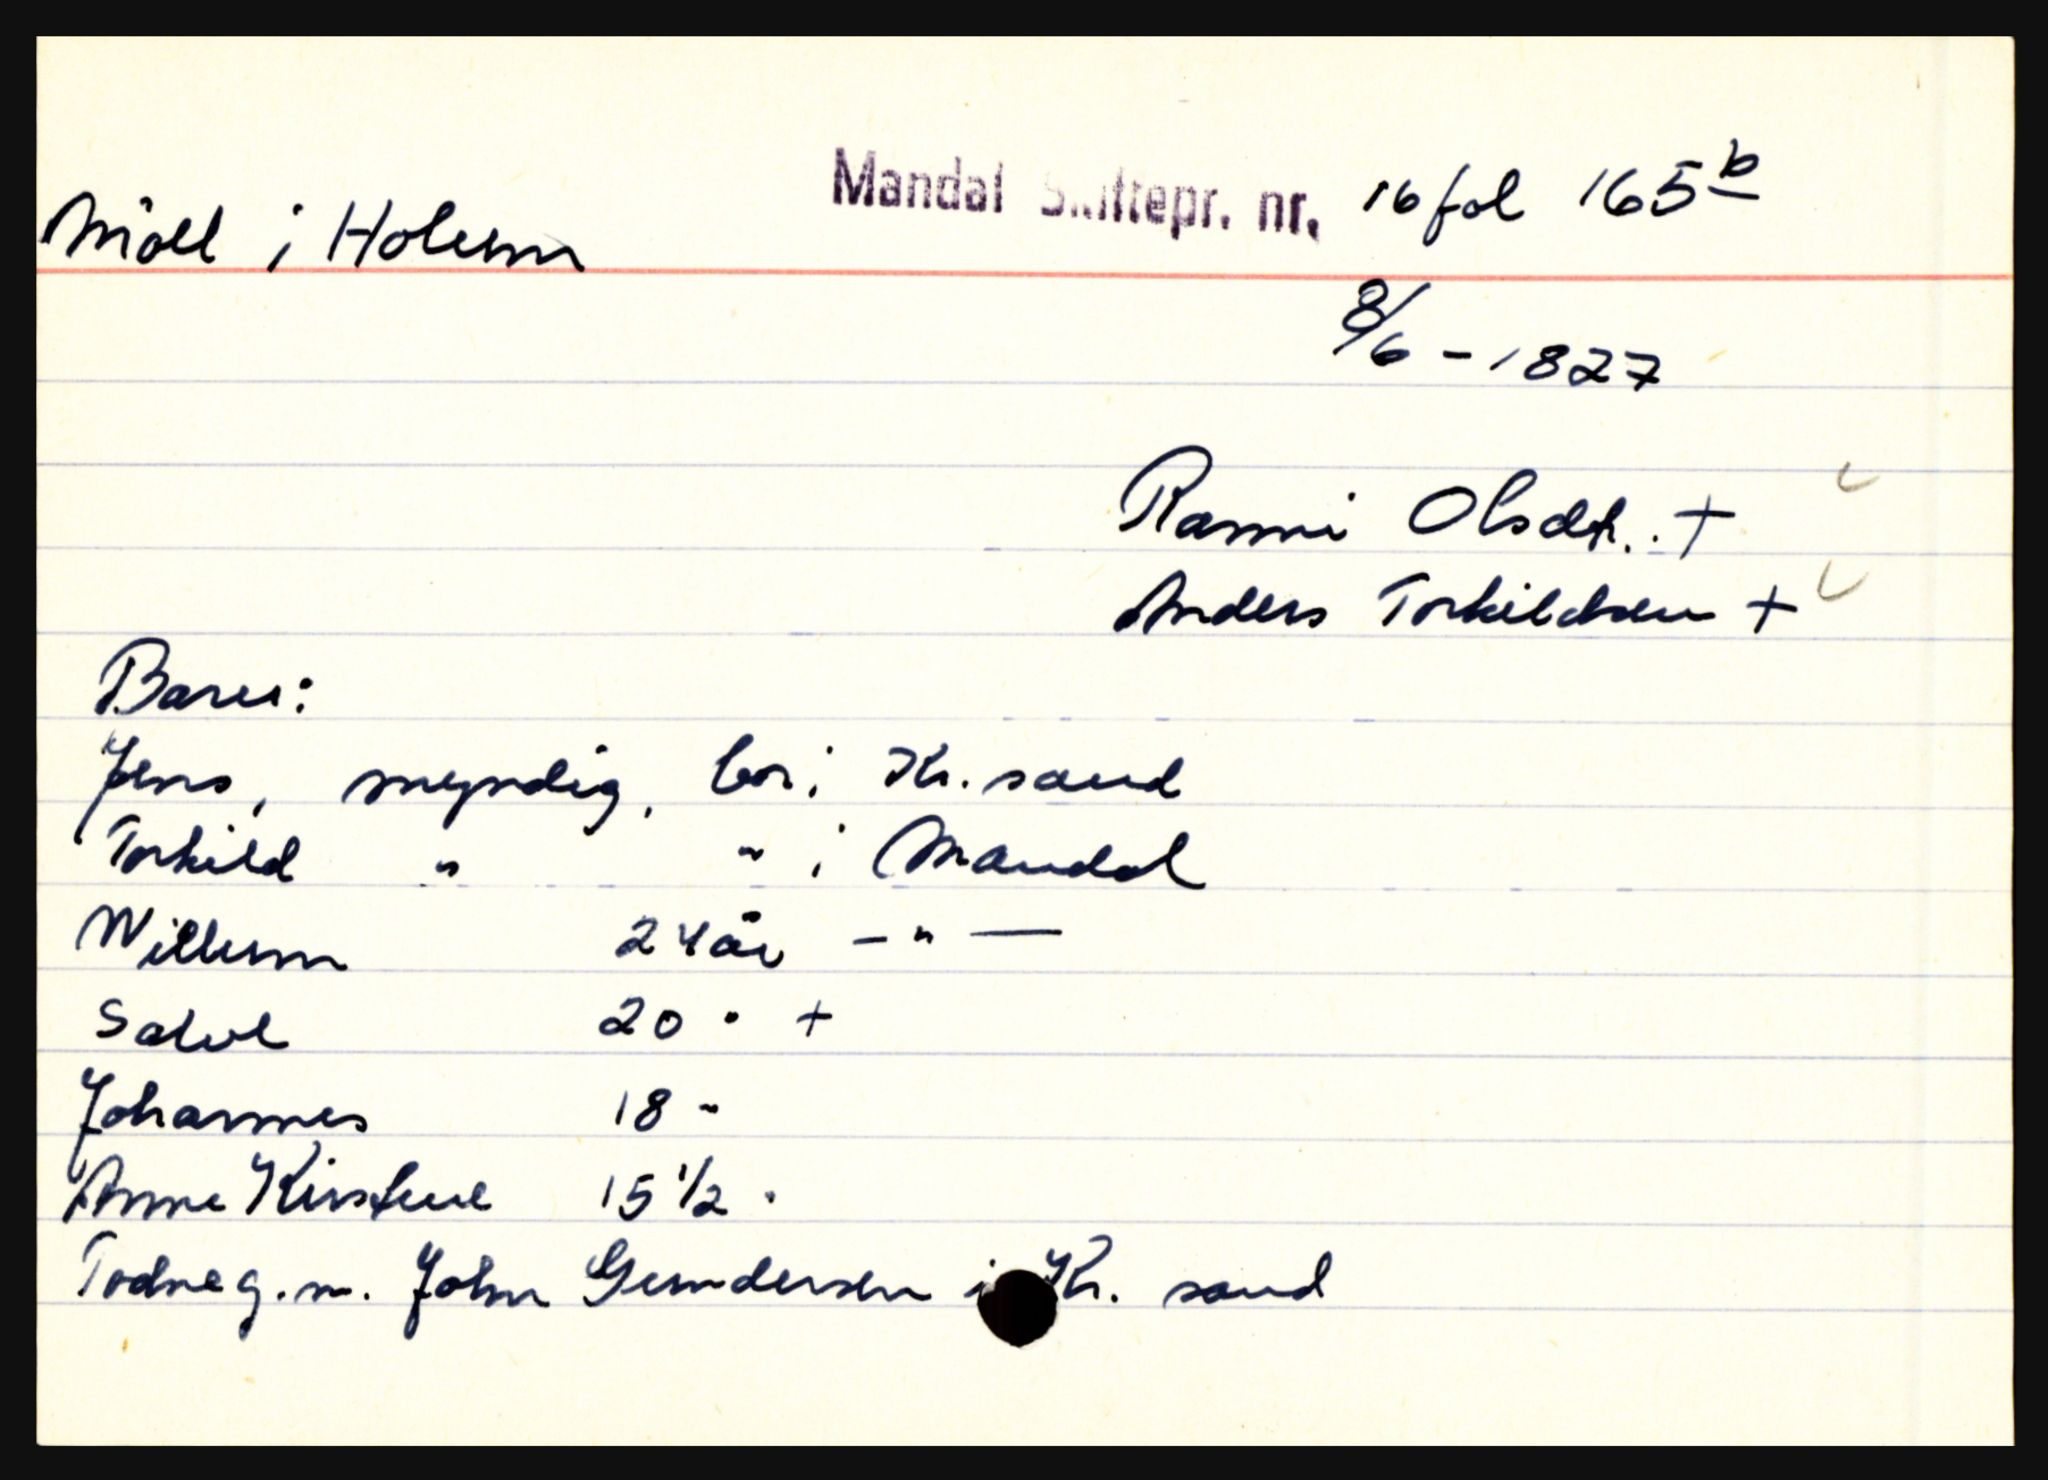 Mandal Skiftepr. nr. 16 fol 165 b
Möll i Holum
8/6 - 1827
Ranni Olsdtr. +
Anders Torkildsen +
Barn:
Jens, myndig, bor i Kr. sand
Torkild " " i Mandal
Willum 24 år - " -
Salve 20 " +
Johannes 18 "
Anne Kirstine 15 1/2 "
Todne g. m. John Gundersen i Kr. sand